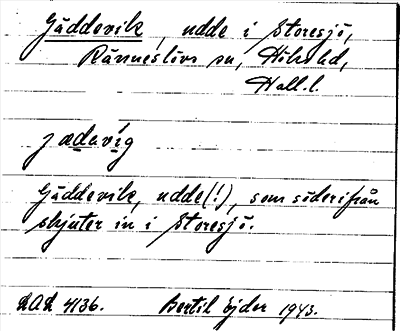 Gäddevik, udde i Storesjö,
Ränneslövs sn, Höks hd,
Hall. l.
jædavíg
Gäddevik, udde(!), som söderifrån
skjuter in i Storesjö.
LAL 4136. Bertil Ejder 1943.